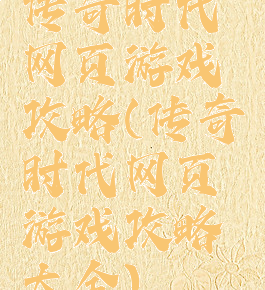 传奇时代
网页游戏
攻略(传奇
时代网页
游戏攻略
大全)